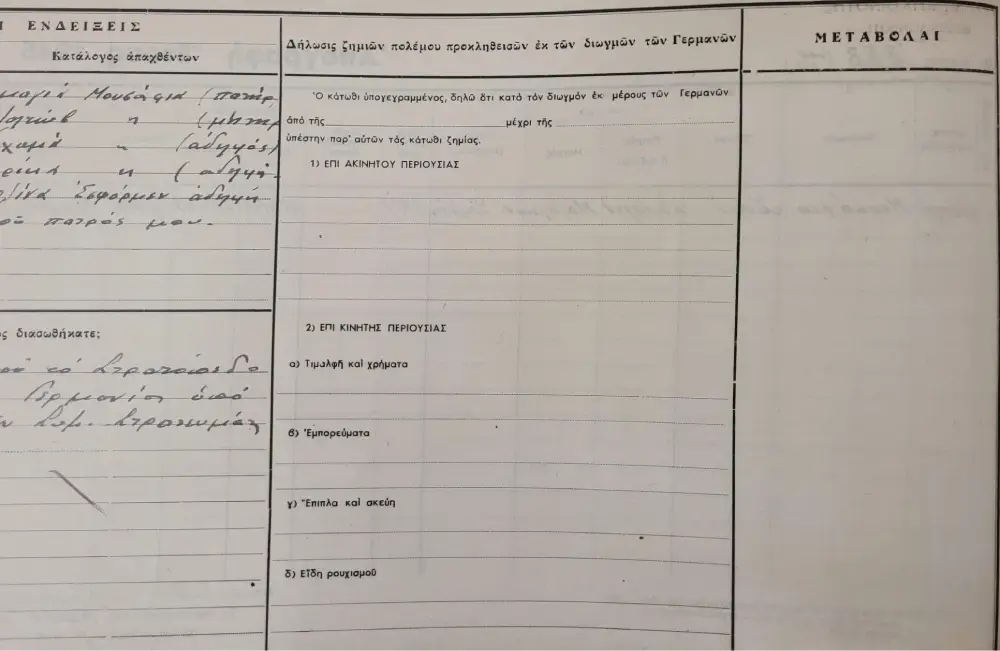 Ι ΕΝΔΕΙΞΕΙΣ
Κατάλογος ἀπαχθέντων
Μουσάφια (πατήρ
" (μήτηρ
" (ἀδελφός)
" (ἀδελφή
ἀδελφή
πατρός μου.
ς διασωθήκατε;
τό Στρατόπεδο
Γερμανίας ἀπό
Συμ. Στρατευμάτ
Δήλωσις ζημιῶν πολέμου προκληθεισῶν ἐκ τῶν διωγμῶν τῶν Γερμανῶν
Ὁ κάτωθι ὑπογεγραμμένος, δηλῶ ὅτι κατά τόν διωγμόν ἐκ μέρους τῶν Γερμανῶν
ἀπό τῆς μέχρι τῆς
ὑπέστην παρ' αὐτῶν τάς κάτωθι ζημίας.
1) ΕΠΙ ΑΚΙΝΗΤΟΥ ΠΕΡΙΟΥΣΙΑΣ
2) ΕΠΙ ΚΙΝΗΤΗΣ ΠΕΡΙΟΥΣΙΑΣ
α) Τιμαλφῆ καί χρήματα
β) Ἐμπορεύματα
γ) Ἔπιπλα καί σκεύη
δ) Εἴδη ρουχισμοῦ
ΜΕΤΑΒΟΛΑΙ